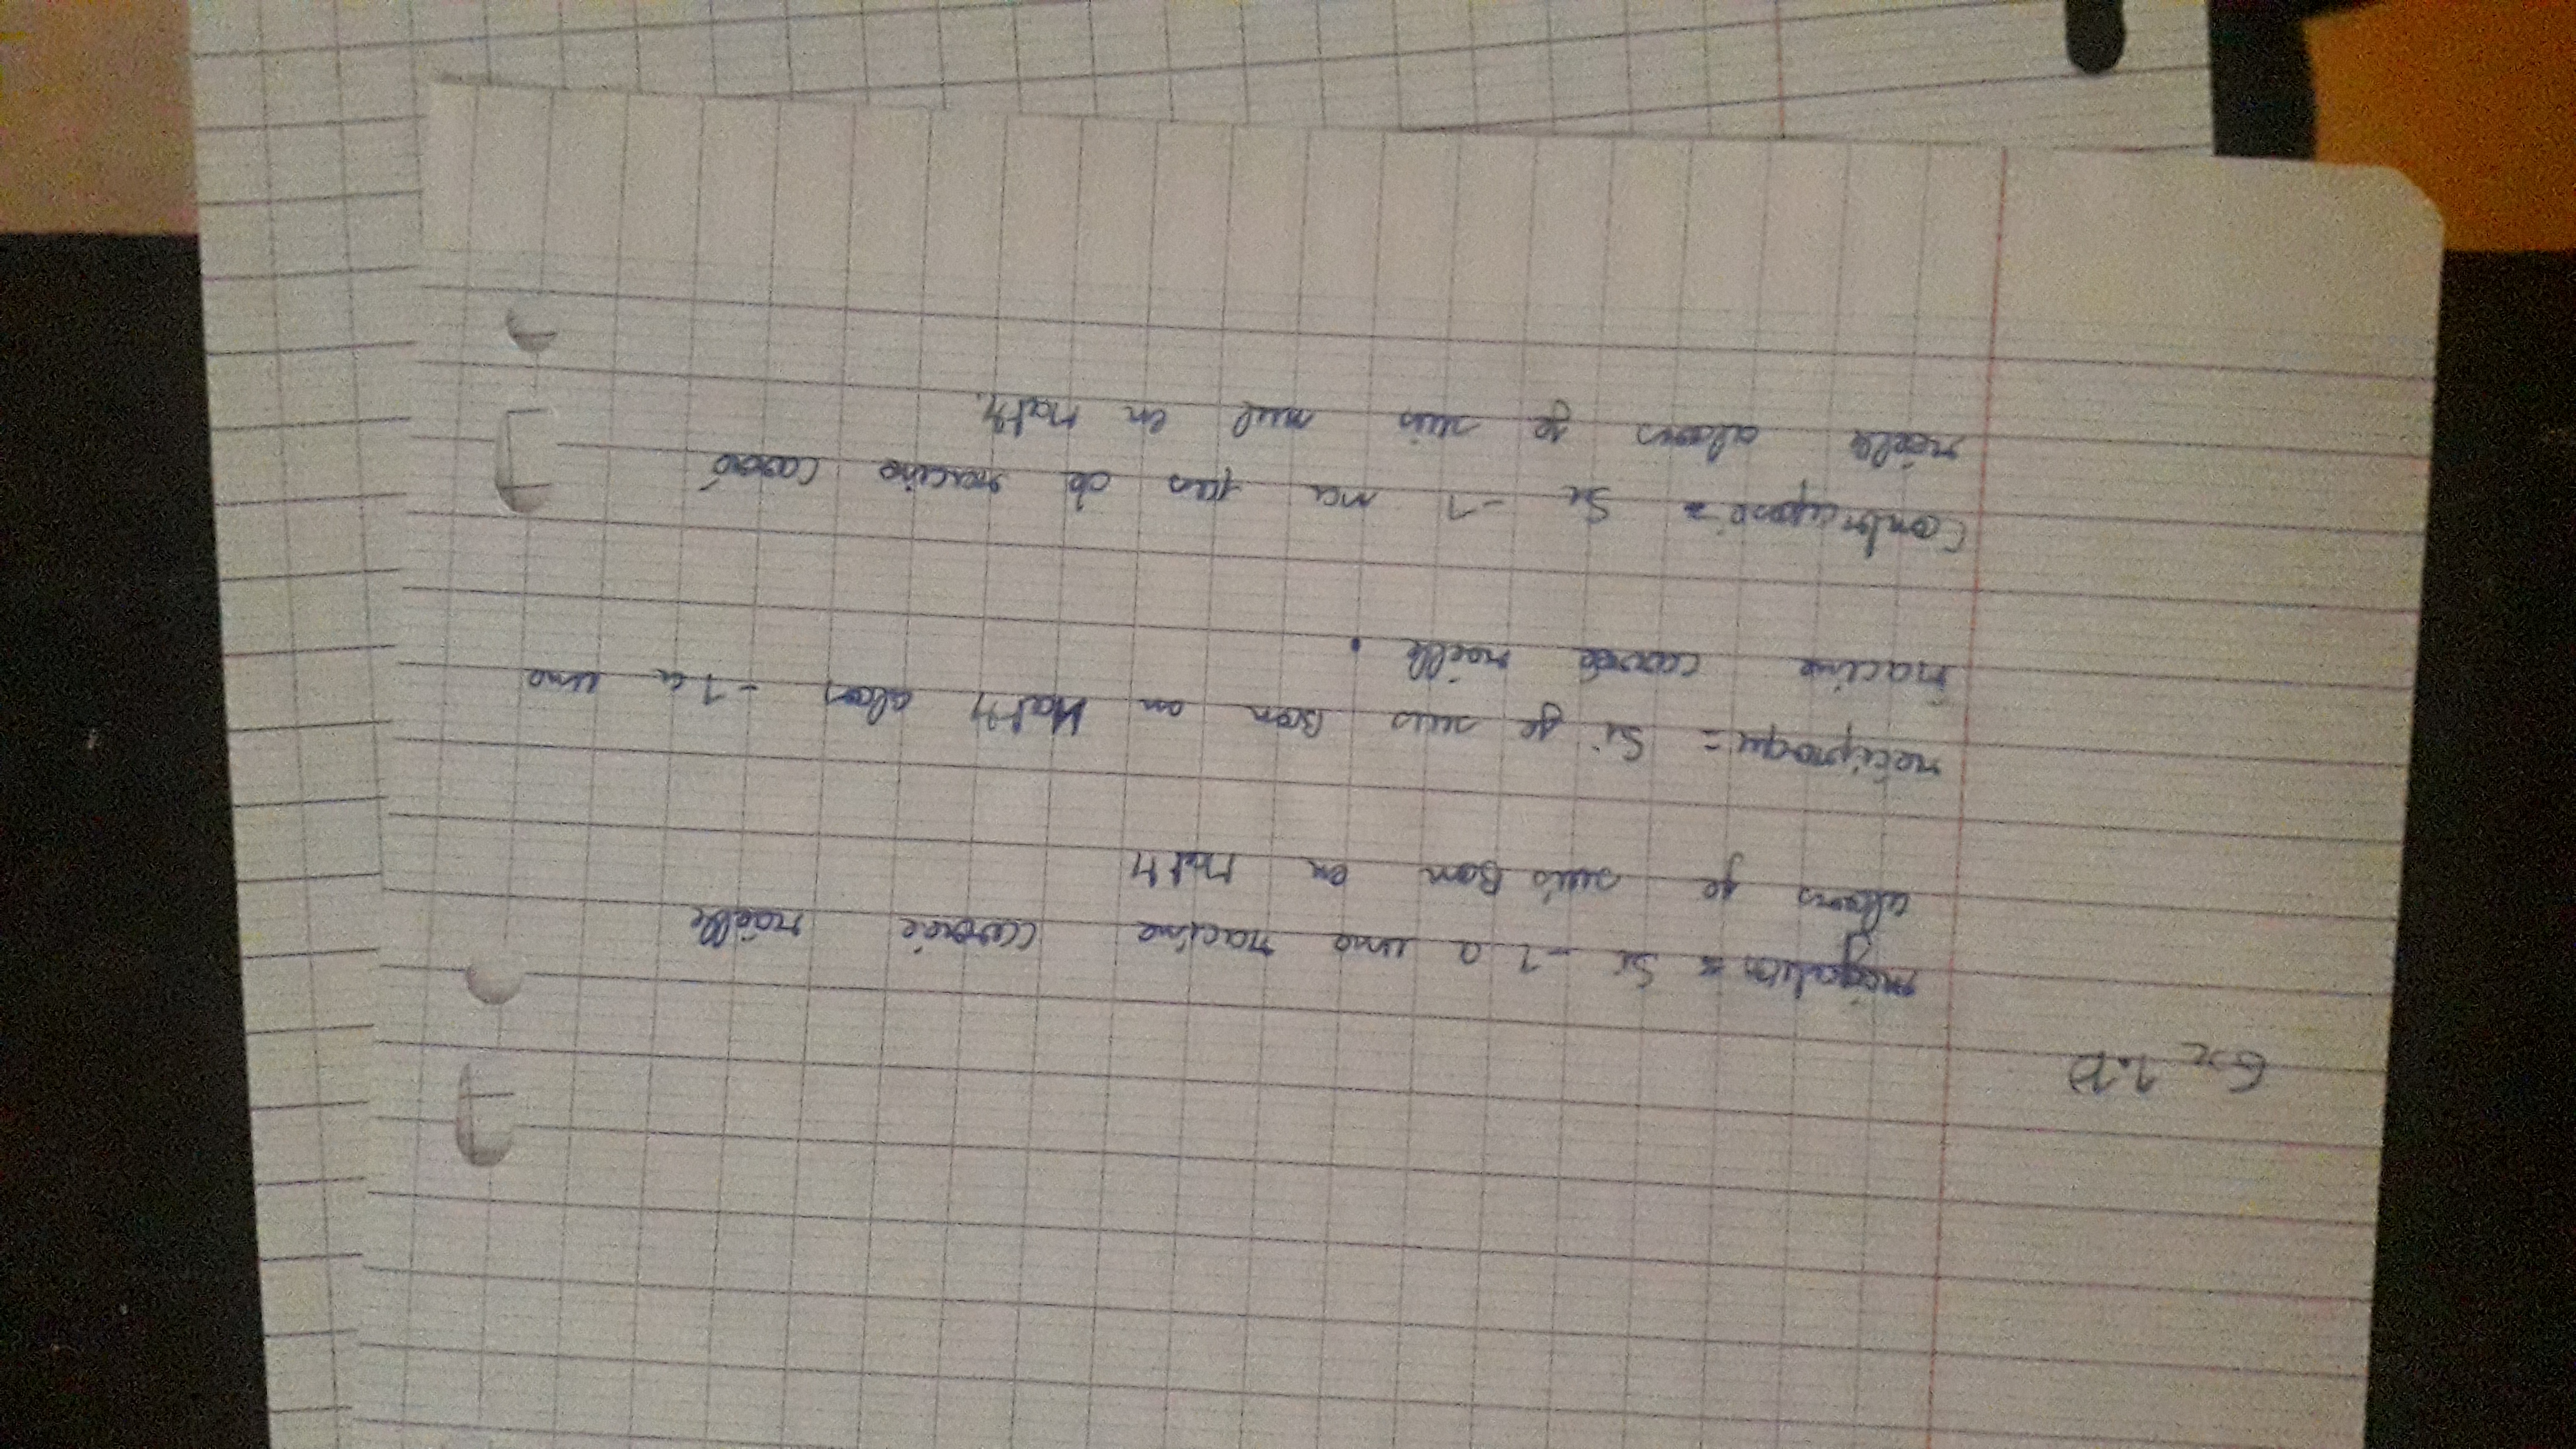 Ex 1.12
négation = Si -1 a une racine carrée réelle
alors je suis Bon en Math
réciproqu = Si je suis Bon en Math alors -1 a une
racine carrée réelle .
Contraposé = Si -1 na pas de racine carré
réele alors je suis nul en Math.